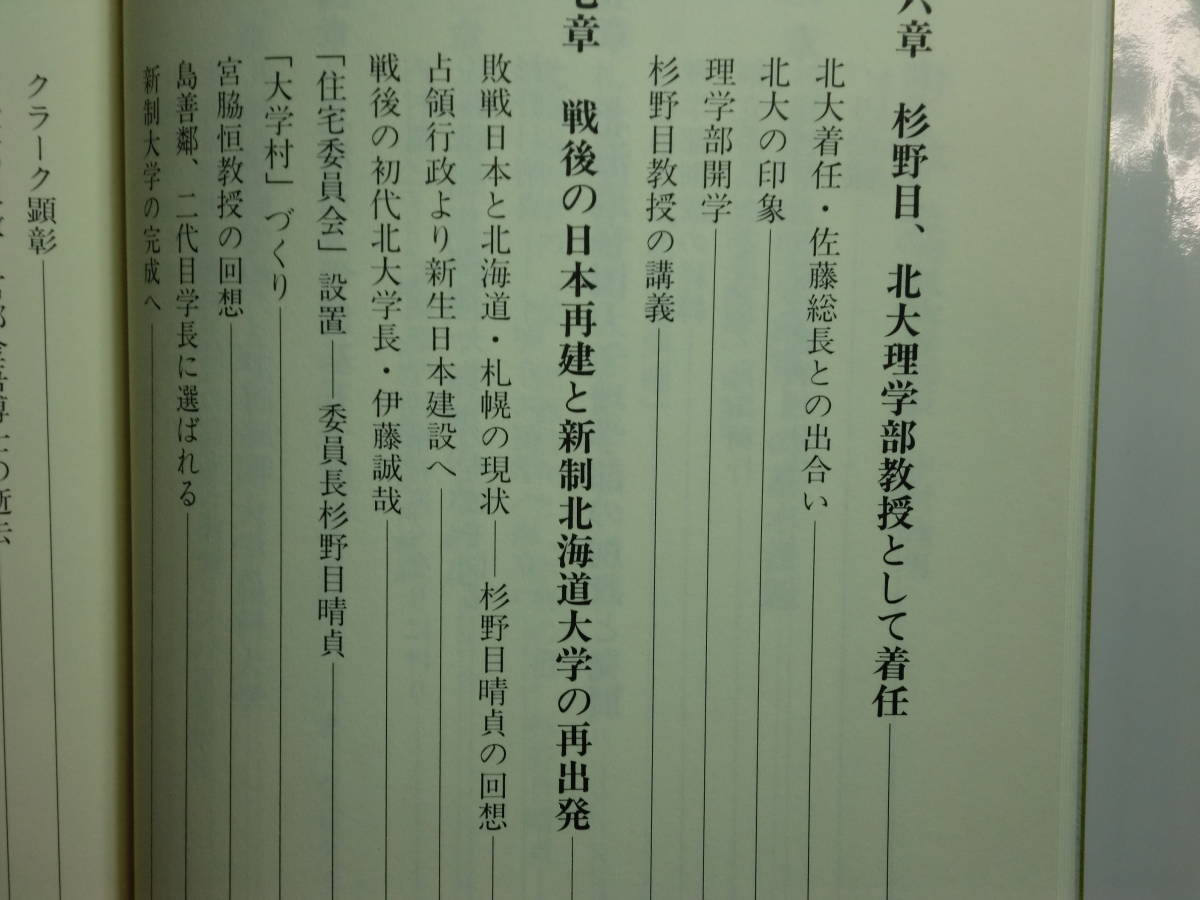 六章　杉野目、北大理学部教授として着任
北大着任・佐藤総長との出合い
北大の印象
理学部開学
杉野目教授の講義
七章　戦後の日本再建と新制北海道大学の再出発
敗戦日本と北海道・札幌の現状――杉野目晴貞の回想
占領行政より新生日本建設へ
戦後の初代北大学長・伊藤誠哉
「住宅委員会」設置――委員長杉野目晴貞
「大学村」づくり
宮脇恒教授の回想
島善鄰、二代目学長に選ばれる
新制大学の完成へ
クラーク顕彰
博士の逝去